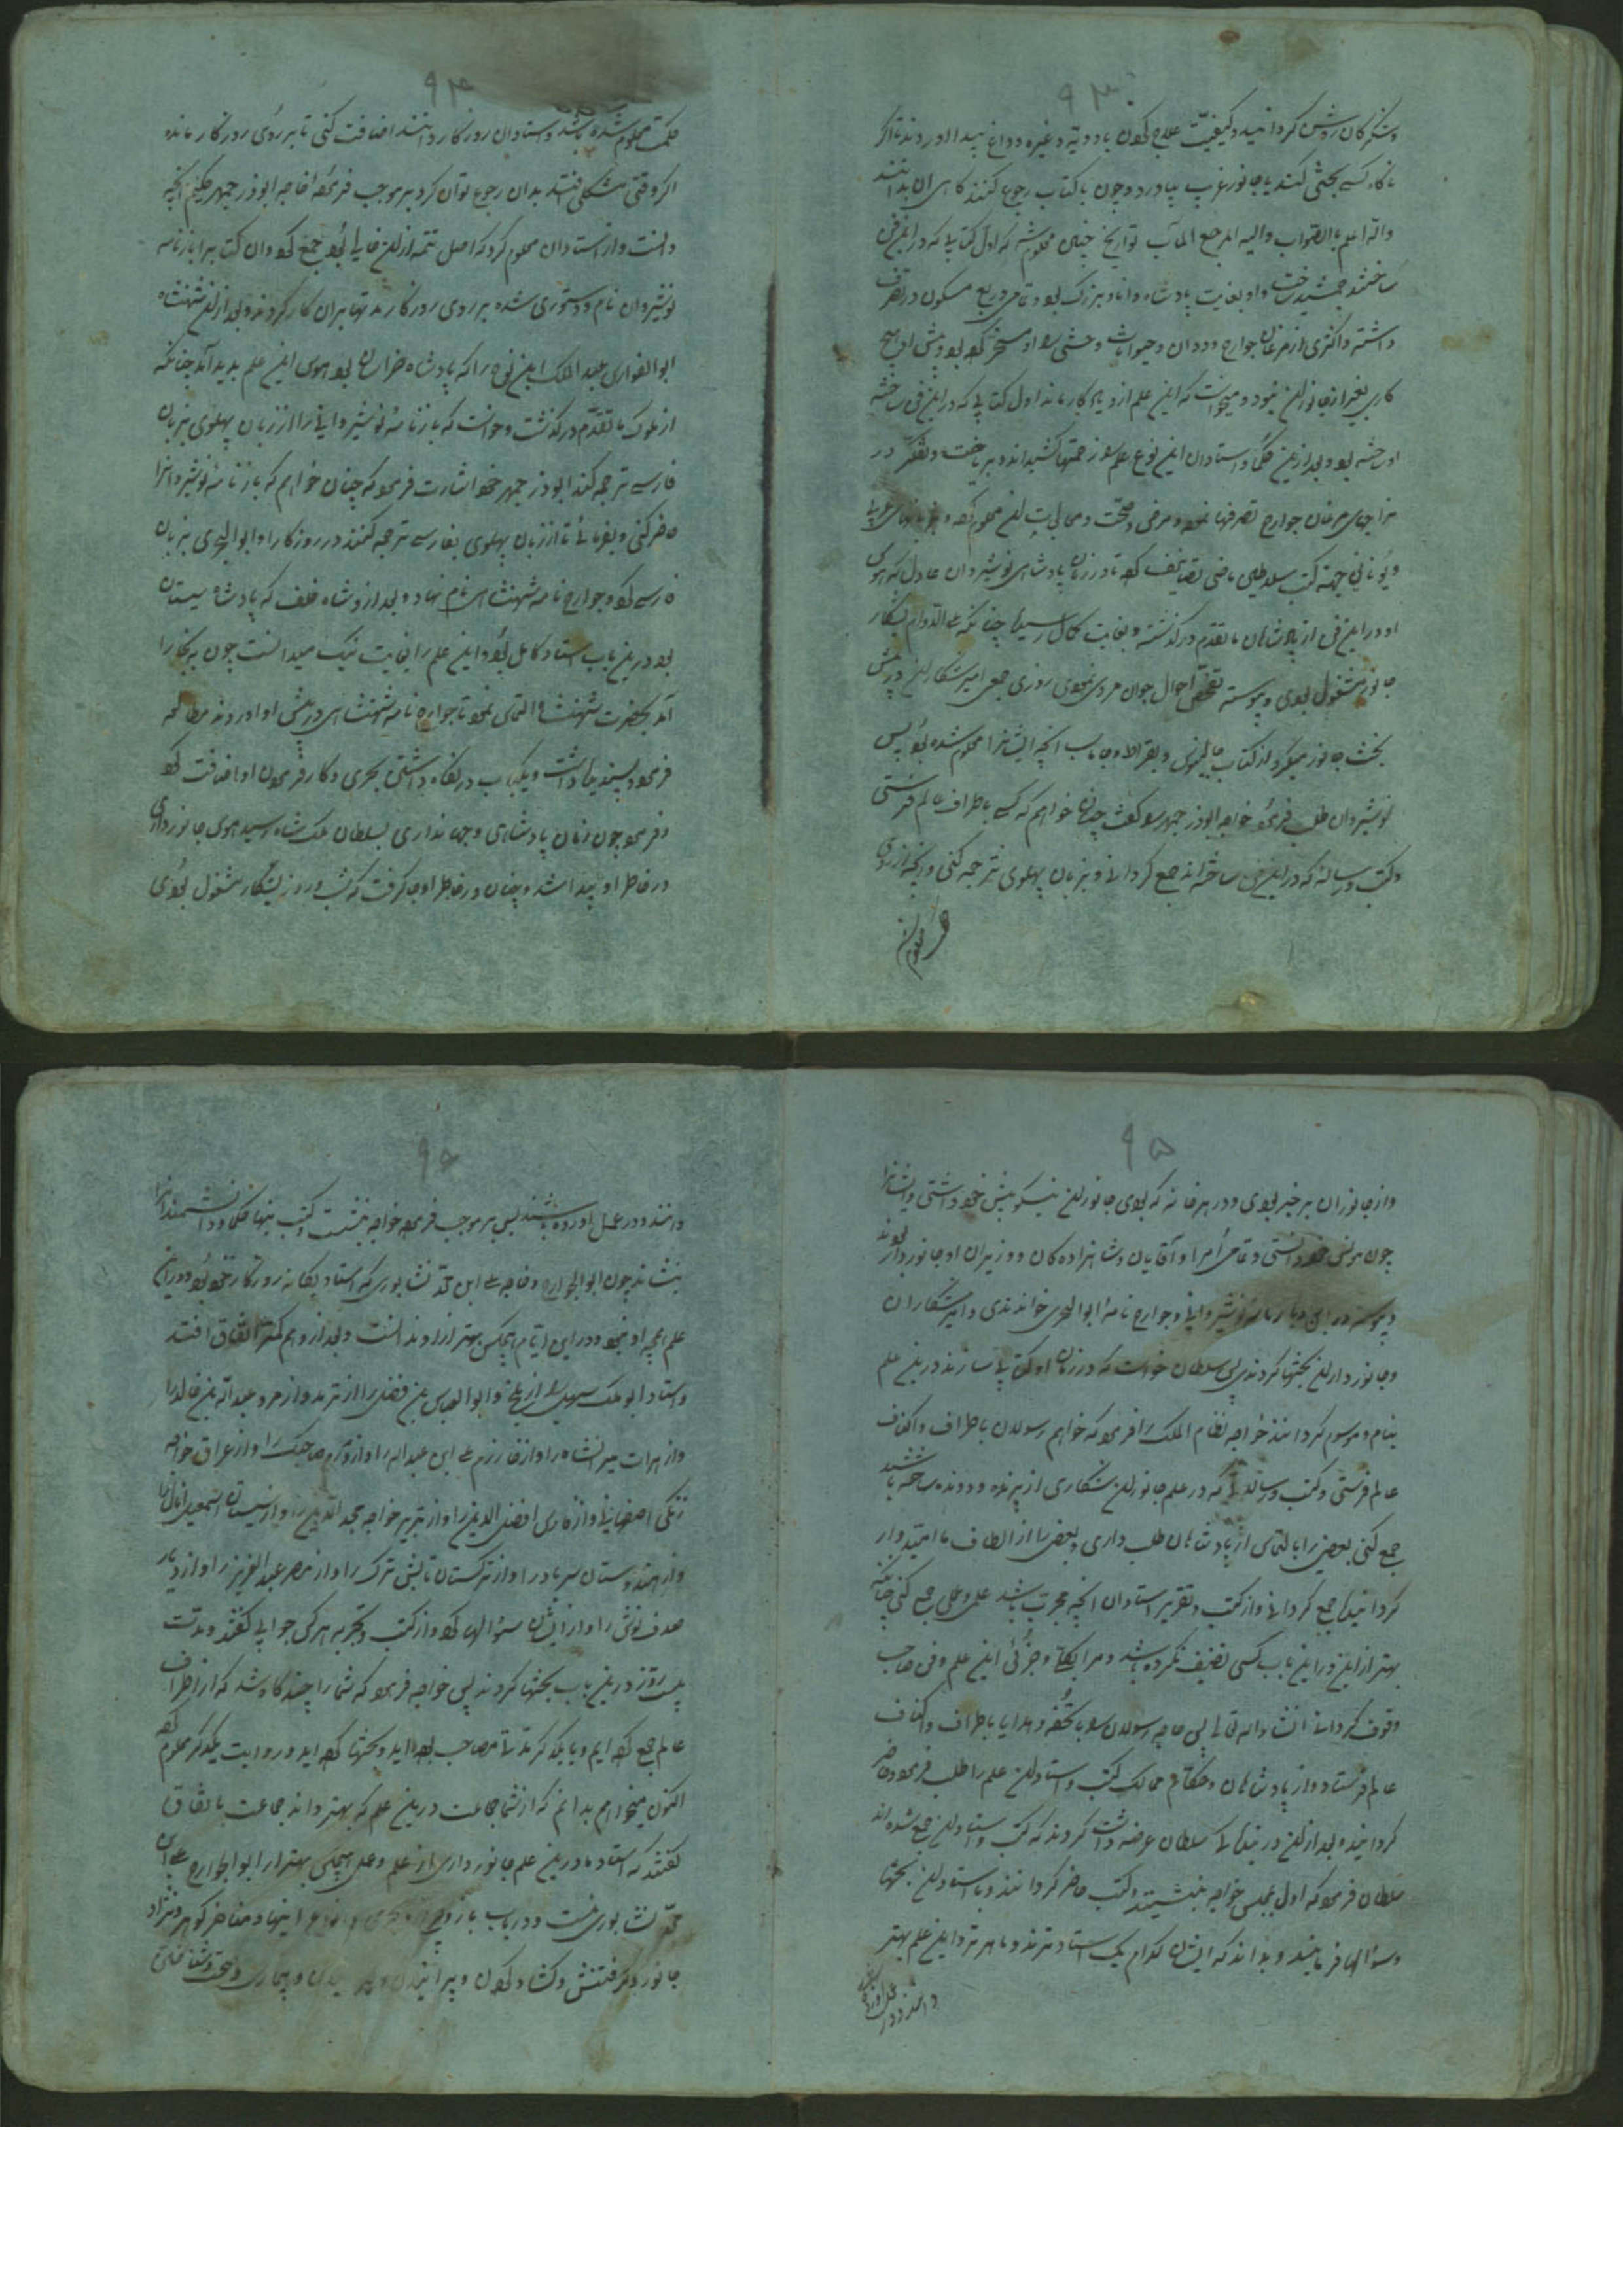 ۹۳
و شکرکان روشن کردانید و کیفیت علاج کردن بادویه و غیره و داغ پیدا آوردند تا اگر
ناگاه کسی بحثی کند یا جانور غریب بیاورد و چون با کتاب رجوع کنند کاهی آن بدانند
والله اعلم بالصواب والیه المرجع والمآب تواریخ چنین معلوم شد که اول کتابی که درین فن
ساختند جمشید ساخت و او بغایت پادشاه دانا و بزرک بود و تمامی ربع مسکون در تصرف
داشته و اکثری از مرغان جوارح و ددان و حیوانات وحشی را او مسخر کرده بود و پیش او هیچ
کاری بغیر از جانوران نبود و میخواست که این علم ازو یادکار ماند اول کتابی که درین فن ساخته
او ساخته بود و بعد ازین حکما و استادان این نوع علم را زحمتها کشیدند و بریاضت و تفکر در
مزاجهای مرغان جوارح تصرفها نمود و مرض و صحت و معالجت آن معلوم کرده و بزبانهای عربی
و یونانی جهة کتب سلاطین ماضی تصانیف کرده تا در زمان پادشاهی نوشیروان عادل که هوس
او درین فن از پادشاهان ماتقدم درکذشته و بغایت کمال رسید چنانکه علی الدوام بشکار
جانور مشغول بودی و پیوسته تفحص احوال جوارح نمودی روزی جمعی امیر شکاران در پیش
بحث جانور میکردند از کتاب جالینوس و بقراط و جاماسب آنچه ایشانرا معلوم شده بود پس
نوشیروان طلب فرمود خواجه ابوذرجمهر را و کفت چنان خواهم که کسی باطراف عالم فرستی
و کتب و رساله که درین فن ساخته اند جمع کردانی و بزبان پهلوی ترجمه کنی و آنچه از روی
حکمت معلوم
۹۴
حکمت معلوم شده باشد و استادان روزکار دانند اضافت کنی تا بر روی روزکار ماند
اگر وقتی مشکلی افتد بدان رجوع توان کرد بر موجب فرموده خواجه ابوذرجمهر حکیم آنچه
دانست و از استادان معلوم کرد که اصل تتمه ازان خالی بود جمع کرد و آن کتاب را بازنامه
نوشیروان نام و دستوری شده بر روی روزکار مدتها بران کار کردند و بعد ازان شهنشاه
ابوالفوارس عبدالملک ابن نوح را که پادشاه خراسان بود هوس این علم پدید آمد چنانکه
از ملوک ماتقدم درکذشت و خواست که بازنامه نوشیروانی را از زبان پهلوی بزبان
فارسی ترجمه کند ابوذرجمهر خود اشارت فرمود که چنان خواهم که بازنامه نوشیروانرا
حاضر کنی و بفرمائی تا از زبان پهلوی بفارسی ترجمه کنند در روزکار او ابوالبحری بزبان
فارسی کرد و جوارح نامه شهنشاهی نام نهاد و بعد ازو شاه خلف که پادشاه سیستان
بود درین باب استاد کامل بود و این علم را بغایت نیک میدانست چون به بخارا
آمد بحضرت شهنشاه التماس نمود تا جوارح نامه شهنشاهی در پیش او آوردند مطالعه
فرمود پسندیده داشت و یک باب در نکاه داشتن بحری و کار فرمودن او اضافت کرد
و فرمود چون زمان پادشاهی و جهانداری بسلطان ملک شاه رسید هوس جانورداری
در خاطر او پیدا شد و چنان در خاطر او جا کرفت که شب و روز بشکار مشغول بودی
۹۵
و از جانوران بر خبر بودی و در هر خانه که بودی جانوران نیکو پیش خود داشتی و ایشانرا
چون مونس خود دانستی و تمامی امرا و آقایان و شاهزاده کان و وزیران او جانوردار بودند
و پیوسته در پیش او بازنامه نوشیروانی و جوارح نامه ابوالبحری خواندندی و امیر شکاران
و جانورداران بحثها کردندی پس سلطان خواست که در زمان او کتابی سازند درین علم
بنام او موسوم کردانند خواجه نظام الملک را فرمود که خواهم رسولان باطراف و اکناف
عالم فرستی و کتب و رساله که در علم جانوران شکاری از پرنده و دونده ساخته باشند
جمع کنی بعضی را بالتماس از پادشاهان طلب داری و بعضی را از الطاف ما امیدوار
کردانیده جمع کردانی و از کتب و تقریر استادان آنچه مجرب باشد علمی و عملی جمع کنی چنانکه
بهتر ازین درین باب کسی تصنیف نکرده باشد و مرا بکلی و جزئی این علم و فن صاحب
وقوف کردانی انشاءالله تعالی پس خواجه رسولان را با تحفه و هدایا باطراف و اکناف
عالم فرستاد و از پادشاهان و حکام ممالک کتب و استادان علم را طلب فرمود و حاضر
کردانید و بعد ازان در بندکی سلطان عرضه داشت کردند که کتب و استادان جمع شده اند
سلطان فرمود که اول بمجلس خواجه بنشینند و کتب حاضر کردانند و با استادان بحثها
و سؤالها فرمایند و بداند که ایشان کدام یک استادترند و ماهرتر و این علم بهتر
دانند و در عمل آورده
۹۶
دانند و در عمل آورده باشند پس بر موجب فرموده خواجه بنشست و کتب بنهاد و حکما و دانشمندانرا
بنشاند چون ابوالجوارح خواجه علی ابن محمد نشابوری که استاد یکانه روزکار خود بود و درین
علم آنچه او نمود درین ایام هیچکس بهتر ازو ندانست و بعد ازو هم کمتر اتفاق افتد
و استاد ابوملک سهیل را از بلخ و ابوالعباس بن فضل را از ترمد و از مرو عبدالله بن خالد را
و از هرات میرانشاه را و از خوارزم علی ابن عبدالله را و از و از عراق خواجه
زنکی اصفهانی و از فارس افضل الدین را و از تبریز خواجه مجد الدین را و از سیستان اسمعیل
و از هندوستان را و از ترکستان ترک را و از مصر عبدالعزیز را و از دیار
را و از ایشان سؤالها کرد و از کتب و تجربه هرکس جوابی کفتند و مدت
بیست روز درین باب بحثها کردند پس خواجه فرمود که شما را چند کاه شد که از اطراف
عالم جمع کرده ایم و با یکدیکر مدتها مصاحب بوده اید و بحثها کرده اید و روایت یکدیکر معلوم کرده
اکنون میخواهم بدانم که از شما جماعت درین علم که بهتر داند جماعت باتفاق
کفتند که استاد ما درین علم جانورداری از علم و عمل هیچکس بهتر از ابوالجوارح علی
محمد نشابوری نیست و در باب باز و کوهر و نژاد
جانور و کرفتنش و کشاد کردن و پرانیدن و بیماری و صحت